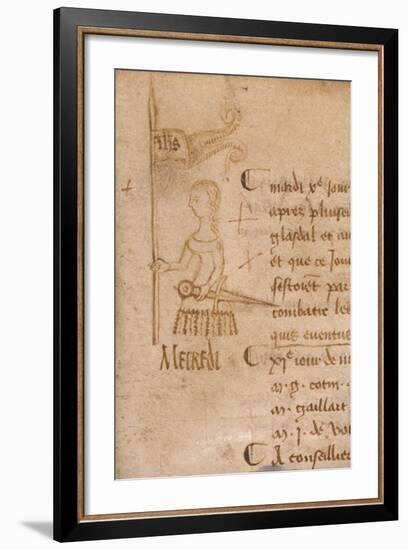 ihs
C mardi xe jour
apres pluise
glasdal et au
et que ce Jou
sestoient par
combatre les
quis eventus
MECREDI
C XIe iour de m
m. g. cotin.
m. gaillart
m. J. de vo
C A conseillier